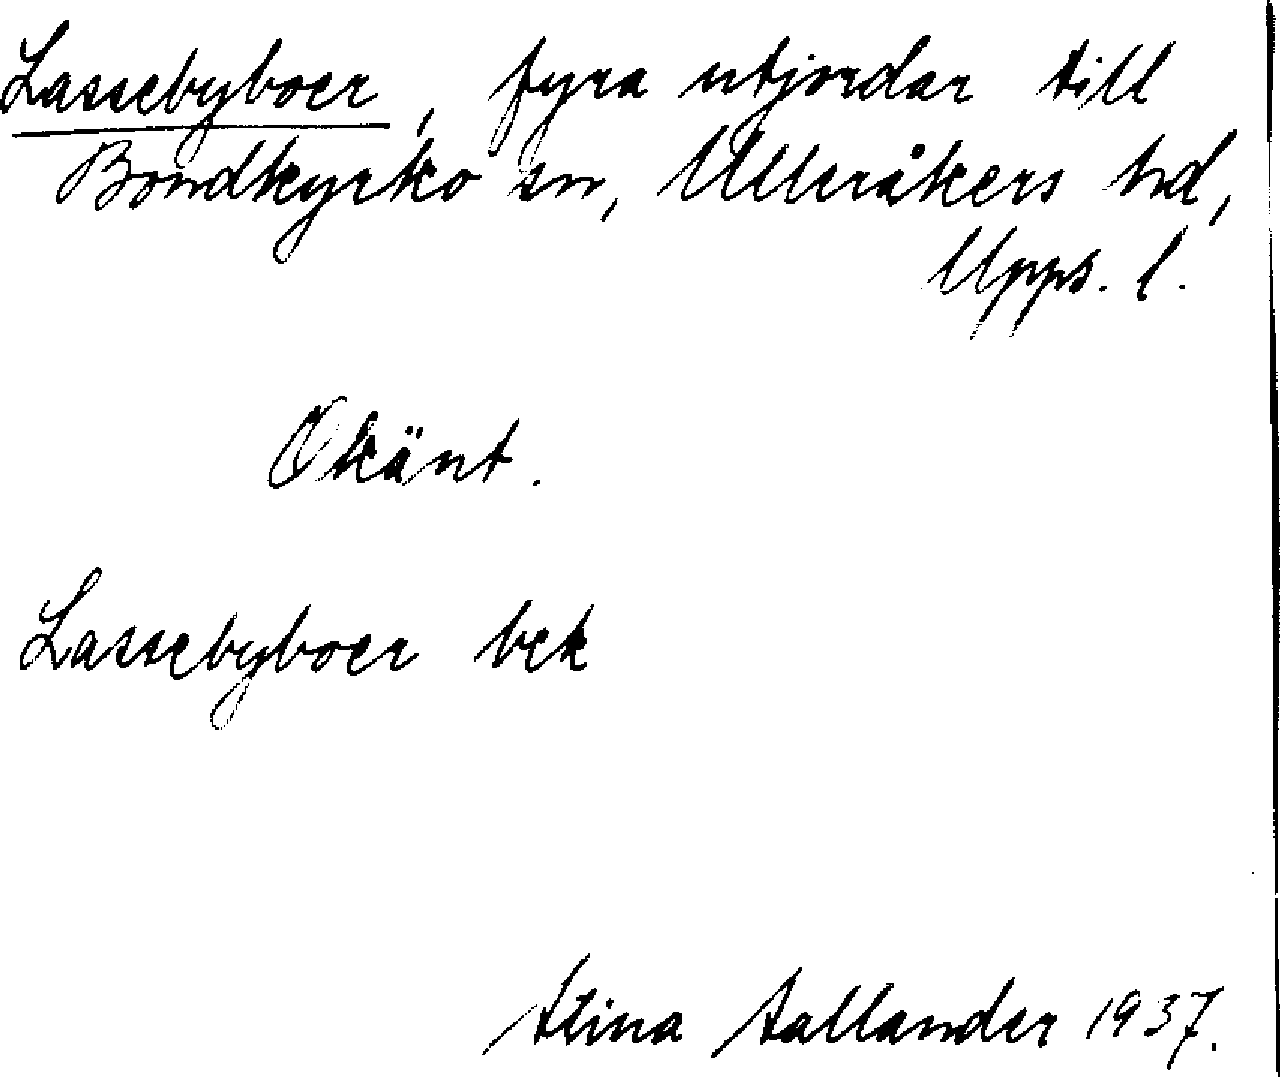 Lassebyboer, fyra utjordar till
Bondkyrko sn, Ulleråkers hd,
Upps. l.
Okänt.
Lassebyboer bek
Stina Sallander 1937.